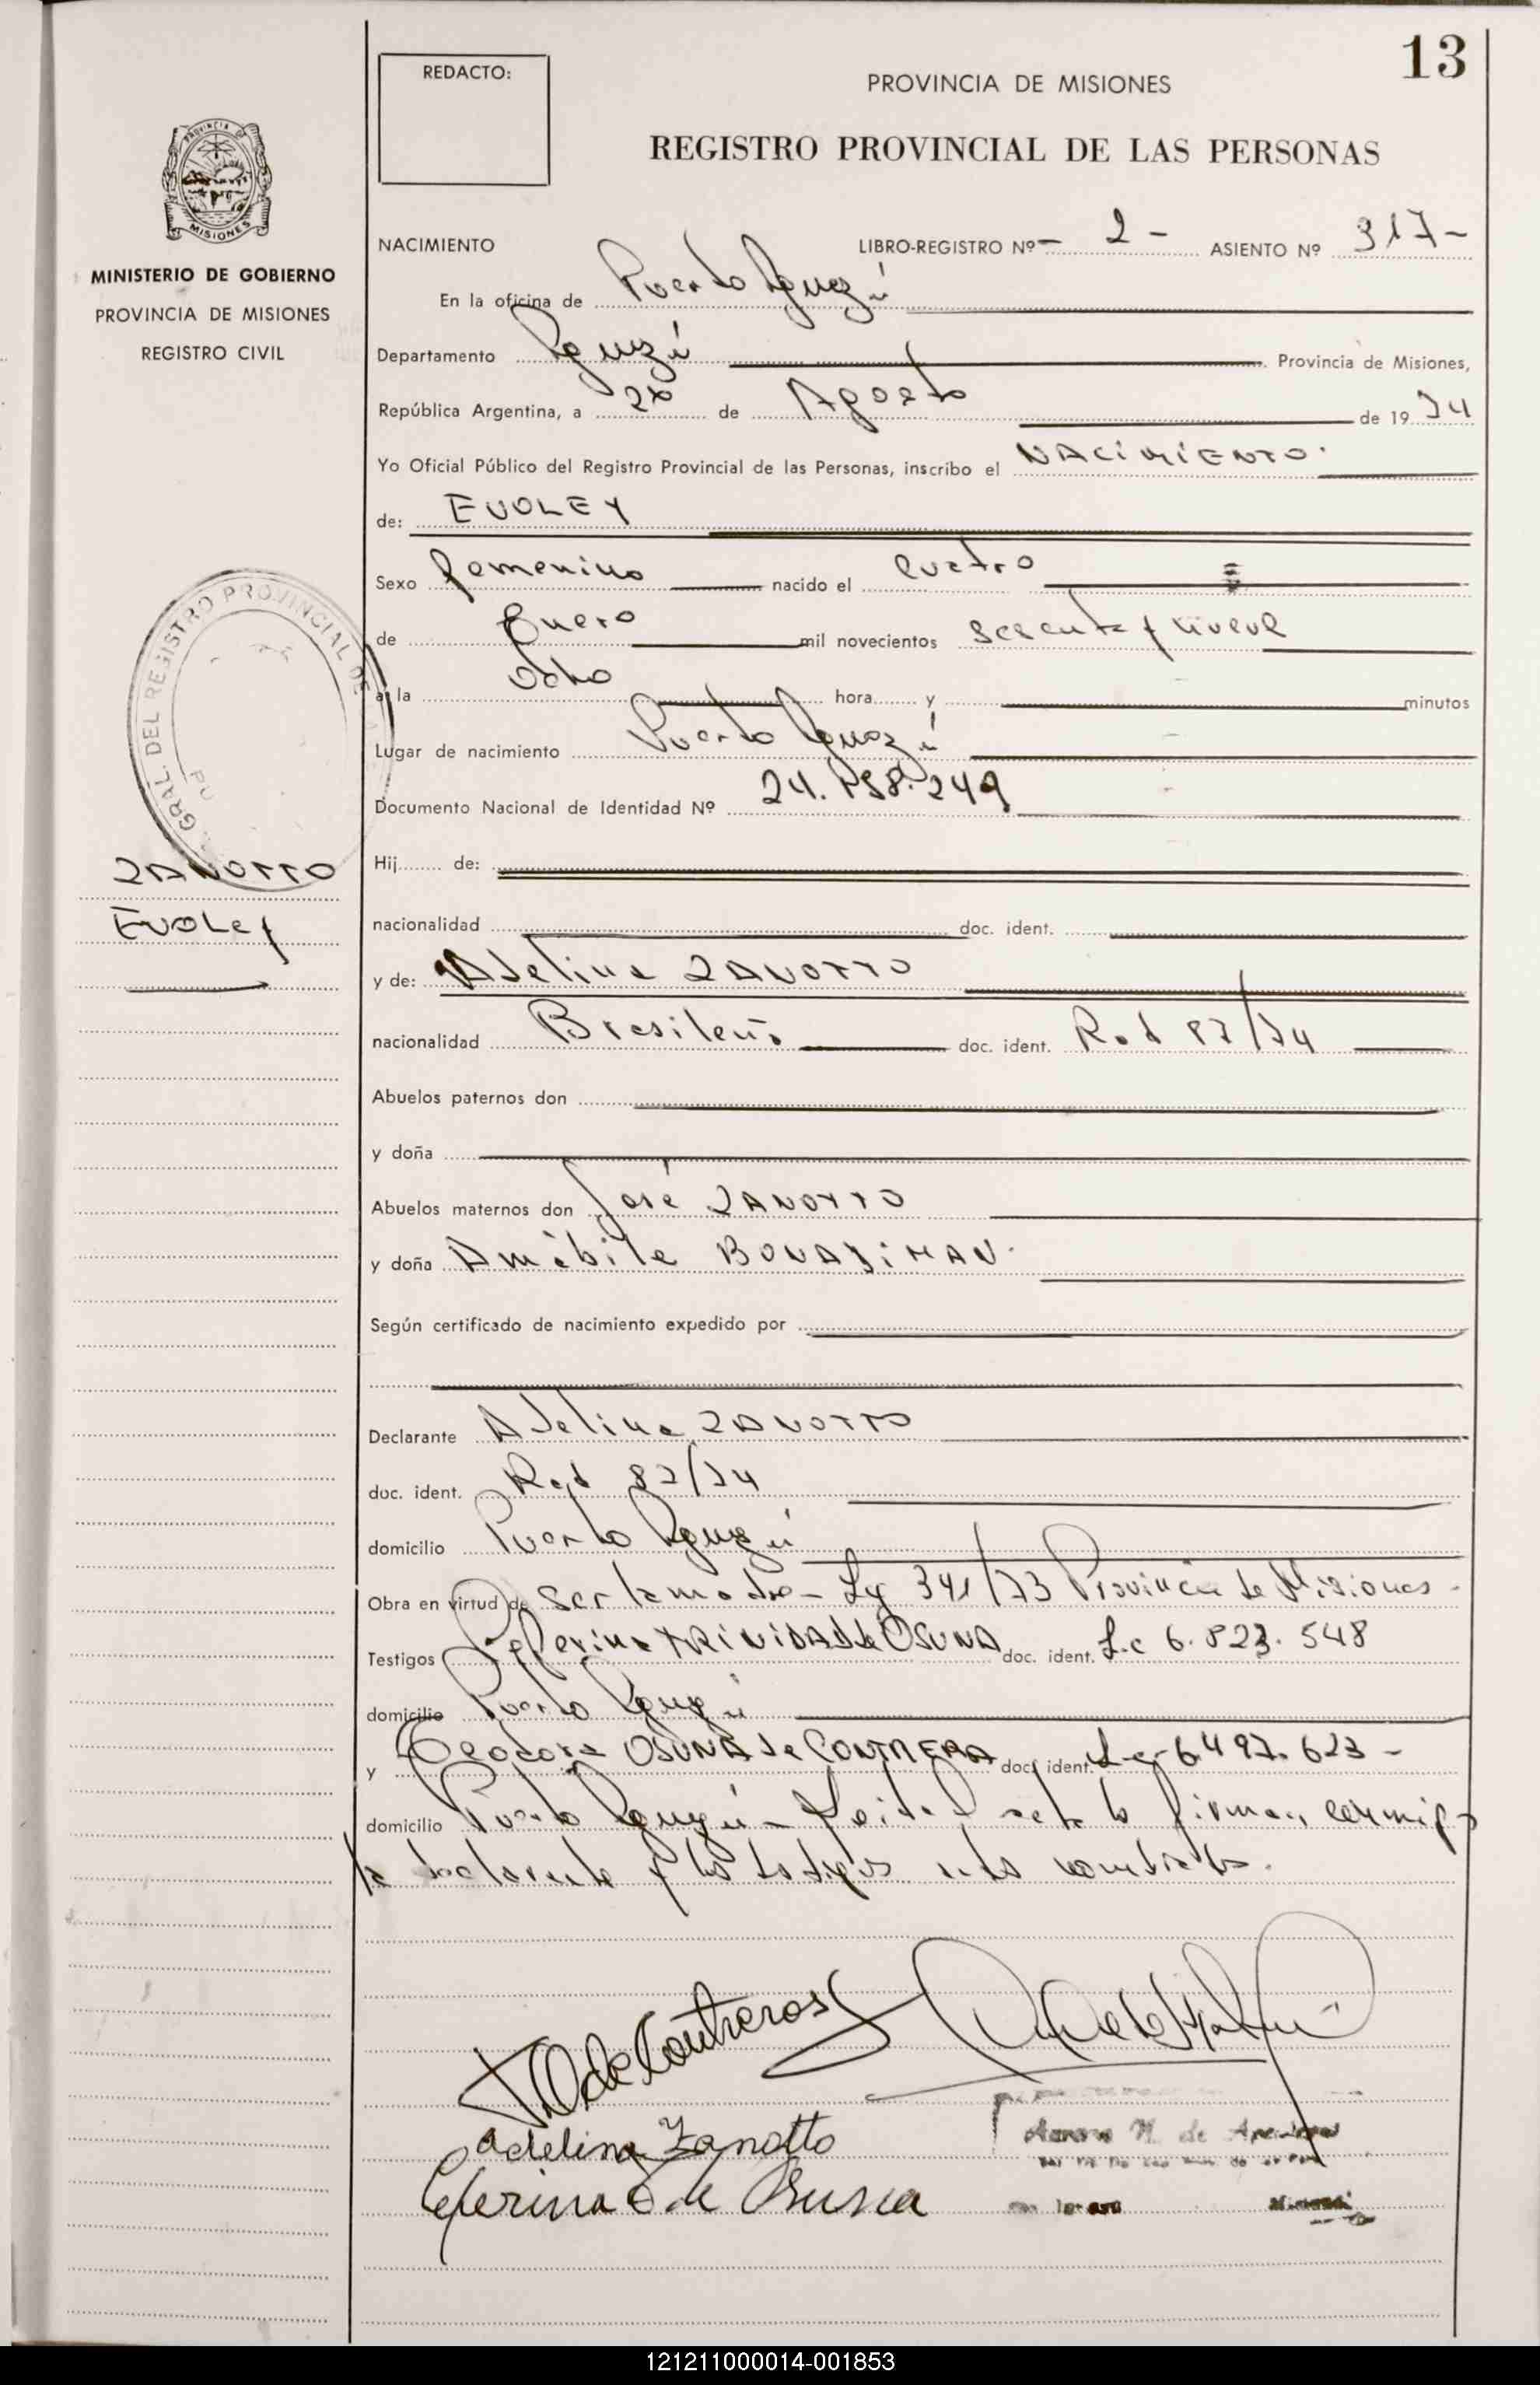 13
REDACTO:
PROVINCIA DE MISIONES
REGISTRO PROVINCIAL DE LAS PERSONAS
PROVINCIA DE
MISIONES
MINISTERIO DE GOBIERNO
PROVINCIA DE MISIONES
REGISTRO CIVIL
NACIMIENTO LIBRO-REGISTRO Nº - 2 - ASIENTO Nº 317 -
En la oficina de Puerto Iguazú
Departamento Iguazú Provincia de Misiones,
República Argentina, a de Agosto de 19 74
Yo Oficial Público del Registro Provincial de las Personas, inscribo el NACIMIENTO.
de: EUOLEY
Sexo femenino nacido el cuatro
de Enero mil novecientos sesenta y nueve
a la ocho hora y minutos
Lugar de nacimiento Puerto Iguazú
Documento Nacional de Identidad Nº 24. 249
GRAL. DEL REGISTRO PROVINCIAL DE
ZANOTTO
EUOLEY
Hij de:
nacionalidad doc. ident.
y de: Adelina ZANOTTO
nacionalidad Brasileña doc. ident. Rad 87/74
Abuelos paternos don
y doña
Abuelos maternos don José ZANOTTO
y doña Amábile
Según certificado de nacimiento expedido por
Declarante Adelina ZANOTTO
doc. ident. Rad 87/74
domicilio Puerto Iguazú
Obra en virtud de ser la madre - Ley 341/73 Provincia de Misiones -
Testigos Ceferina TRINIDAD de OSUNA doc. ident. L.c 6.823.548
domicilio Puerto Iguazú
y Teodora OSUNA de CONTRERA doc. ident. L.c 6.497.623 -
domicilio Puerto Iguazú - Leída el acta la firman conmigo
la declarante y los testigos nombrados.
T O de Contreras
Adelina Zanotto
Ceferina T de Osuna
121211000014-001853